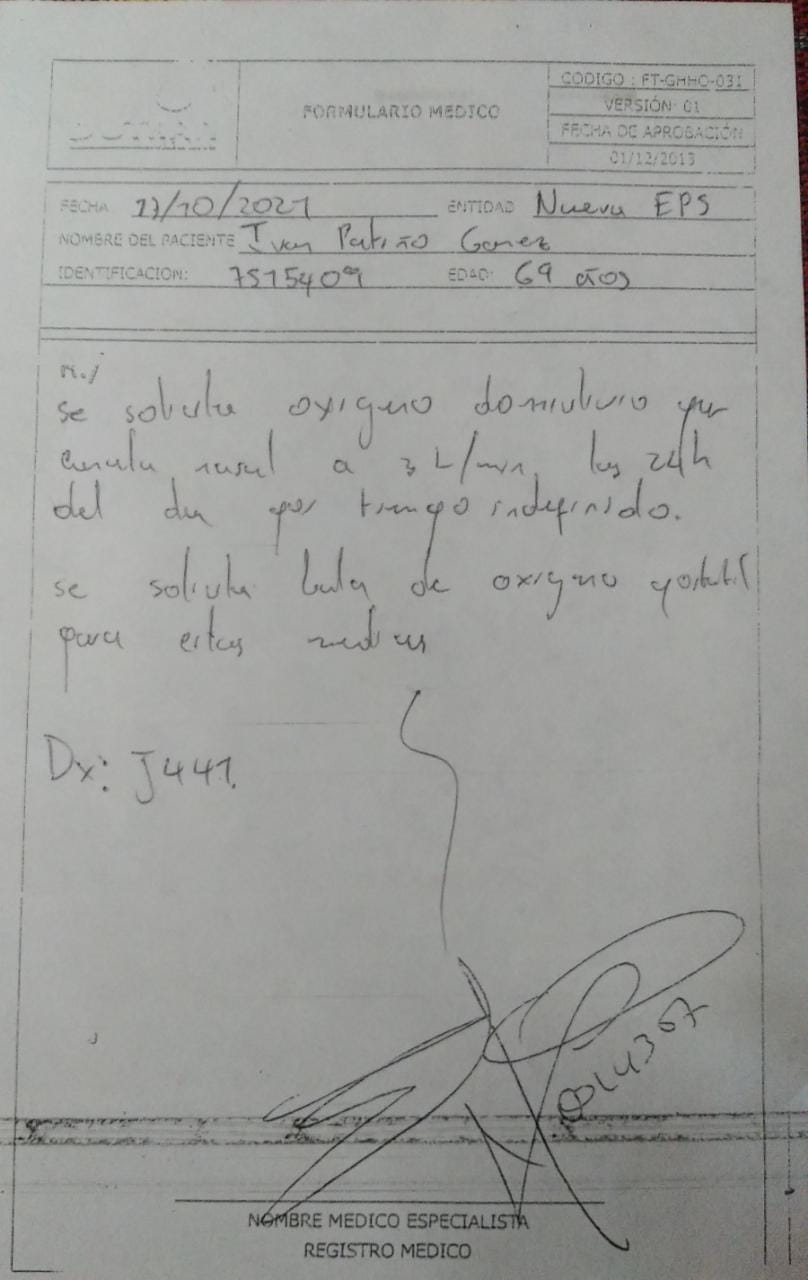 FORMULARIO MEDICO
CODIGO : FT-GHHO-031
VERSIÓN: 01
FECHA DE APROBACIÓN
01/12/2013
FECHA 17/10/2021 ENTIDAD Nueva EPS
NOMBRE DEL PACIENTE Ivan Patiño Gomez
IDENTIFICACION: 7515409 EDAD: 69 años
se solicita oxigeno domiciliario por
canula nasal a 3 L/min, las 24h
del dia por tiempo indefinido.
se solicita bala de oxigeno portatil
para estas medidas
Dx: J441.
NOMBRE MEDICO ESPECIALISTA
REGISTRO MEDICO